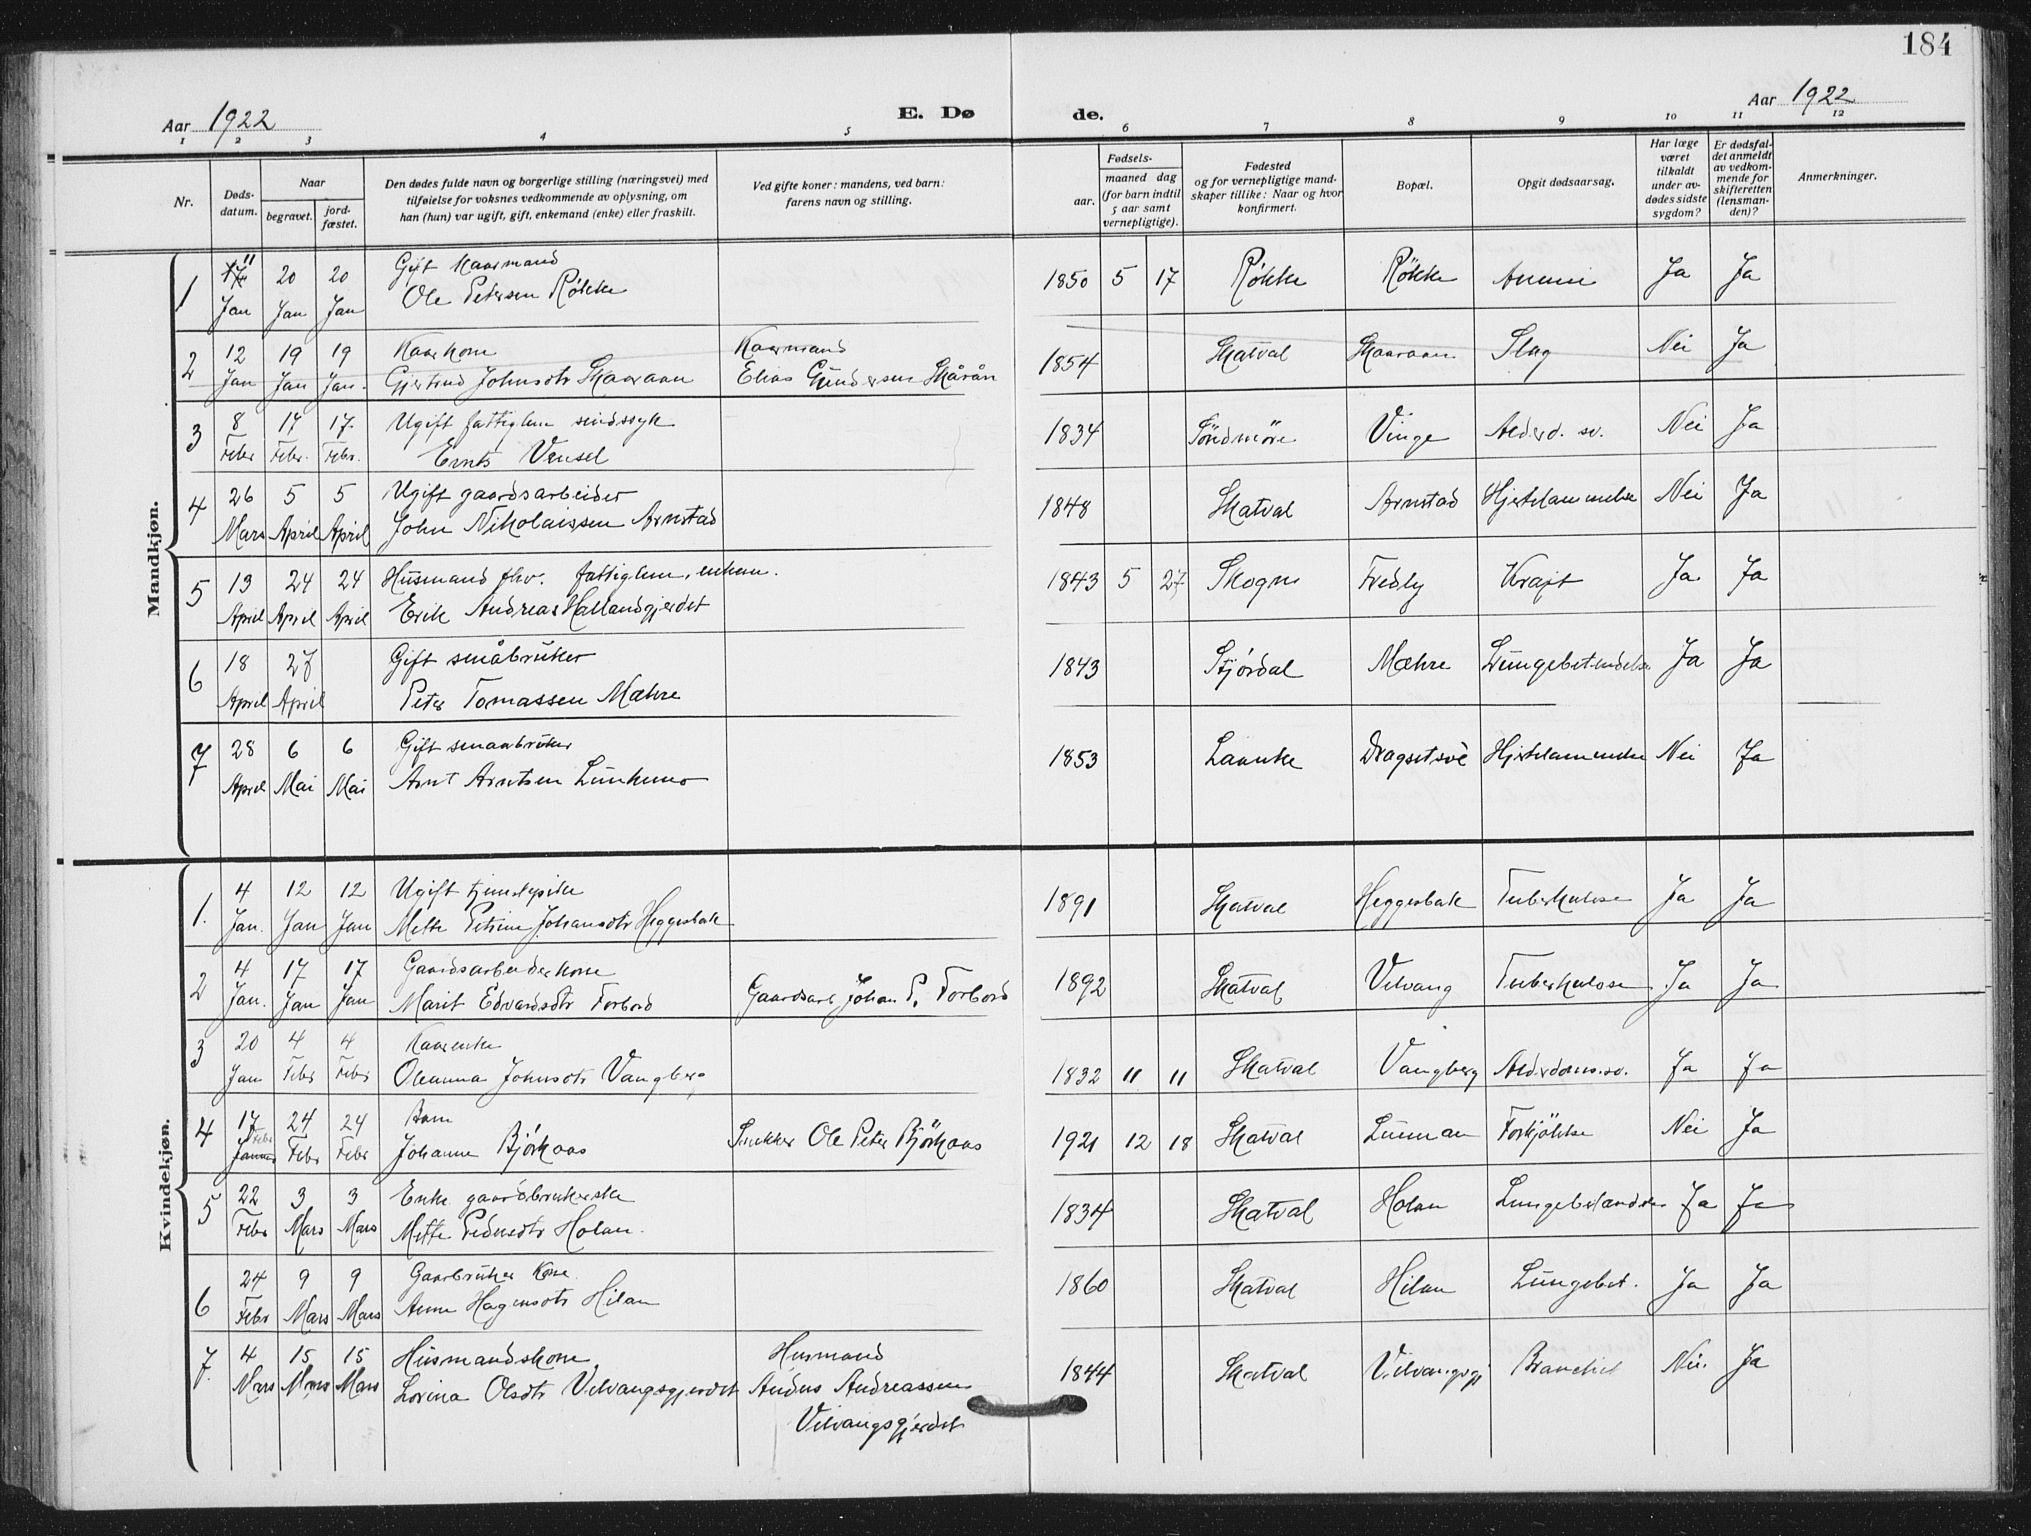 184
Aar 1922
E. Dø
de.
Aar 1922
1 2 3 4 5 6 7 8 9 10 11 12
Nr.
Døds-
datum.
Naar
begravet.
jord-
fæstet.
Den dødes fulde navn og borgerlige stilling (næringsvei) med
tilføielse for voksnes vedkommende av oplysning, om
han (hun) var ugift, gift, enkemand (enke) eller fraskilt.
Ved gifte koner: mandens, ved barn:
farens navn og stilling.
Fødsels-
aar.
maaned dag
(for barn indtil
5 aar samt
vernepligtige).
Fødested
og for vernepligtige mand-
skaper tillike: Naar og hvor
konfirmert.
Bopæl.
Opgit dødsaarsag.
Har læge
været
tilkaldt
under av-
dødes sidste
sygdom?
Er dødsfal-
det anmeldt
av vedkom-
mende for
skifteretten
(lensman-
den)?
Anmerkninger.
Mandkjøn.
1 11 20 20 Gift Kaarmand
Jan Jan Jan Ole Petersen Røkke 1850 5 17 Røkke Røkke Ja Ja
2 12 19 19 Kaarkone Kaarmand
Jan Jan Jan. Gjertrud Johnsdtr Skaaraan Elias Gundersen Skårån 1854 Skatval Skaaraan Slag Nei Ja
3 8 17 17. Ugift fattiglem sindssyk
Febr Febr. Febr. Ernts Vensel 1834 Söndmöre Vinge Alderd. sv. Nei Ja
4 26 5 5 Ugift gaardsarbeider
Mars April April John Nikolaissen Arnstad 1848 Skatval Arnstad Hjertelammelse Nei Ja
5 13 24 24 Husmand fhv. fattiglem, enkem.
April April April Erik Andreas Hallandgjerdet 1843 5 27 Skogn Fredly Kræft Ja Ja
6 18 27 Gift småbruker
April April Peter Tomassen Mæhre 1843 Stjørdal Mæhre Lungebetendelse Ja Ja
7 28 6 6 Gift smaabruker
April Mai Mai Arnt Arntsen Lunkemo 1853 Laanke Hjertelammelse Nei Ja
Kvindekjøn.
1. 4 12 12 Ugift tjenstepike
Jan. Jan Jan Mette Petrine Johansdtr Heggesbak 1891 Skatval Heggesbak Tuberkulose Ja Ja
2 4 17 17 Gaardsarbeiderkone
Jan. Jan Jan Marit Edvardsdtr Forbord Gaardsarb Johan P. Forbord 1892 Skatval Velvang Tuberkulose Ja Ja
3 20 4 4 Kaarenke
Jan Febr Febr Oleanna Johnsdtr Vangberg 1832 11 11 Skatval Vangberg Alderdoms.sv. Ja Ja
4 17 24 24 Barn
Febr Januar Febr Febr Johanne Bjørkaas Snekker Ole Peter Bjørkaas 1921 12 18 Skatval Forkjölelse Nei Ja
5 22 3 3 Enke gaardbrukerske
Febr Mars Mars Mette Pedersdtr Holan. 1834 Skatval Holan Lungebetændelse Ja Ja
6 24 9 9 Gaarbruker Kone
Febr Mars Mars Anne Hagensdtr Hilan 1860 Skatval Hilan Lungebet. Ja Ja
7. 4 15 15 Husmandskone Husmand
Mars Mars Mars Lovina Olsdtr Velvangsgjerdet Anders Andreassen 1844 Skatval Velvangsgj Nei. Ja
Velvangsgjerdet